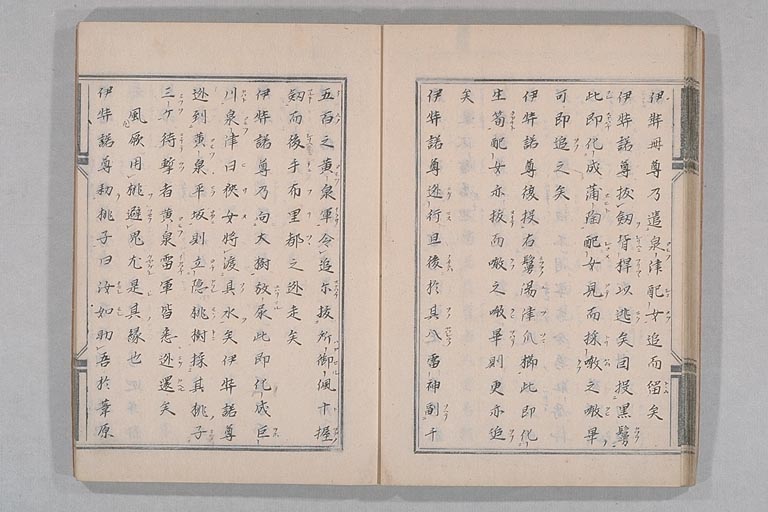 伊弉冊尊乃遣泉津醜女追而留矣
伊弉諾尊抜劔背揮以逃矣因投黒鬘
此即化成蒲陶醜女見而採噉之噉畢
可即追之矣
伊弉諾尊復投右鬘湯津爪櫛此即化
生筍醜女亦抜而噉之噉畢則更亦追
矣
伊弉諾尊逃行且後於其八雷神副千
五百之黄泉軍令追尓抜所御佩十握
劔而後手布里都之逃走矣
伊弉諾尊乃向大樹放尿此即化成巨
川泉津日狹女将渡其水矣伊弉諾尊
逃到黄泉平坂則立隠桃樹採其桃子
三ケ待撃者黄泉雷軍皆悉逃還矣
凡厥用桃避鬼尤是其縁也
伊弉諾尊勅桃子曰汝如助吾於葦原